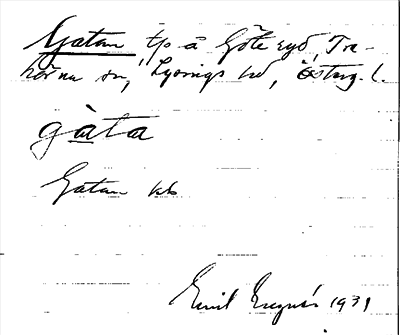 Gatan tp å Göteryd, Tra-
nårna sn, Lysings hd, Östergl.
gàta
Gatan kb
Emil 1931